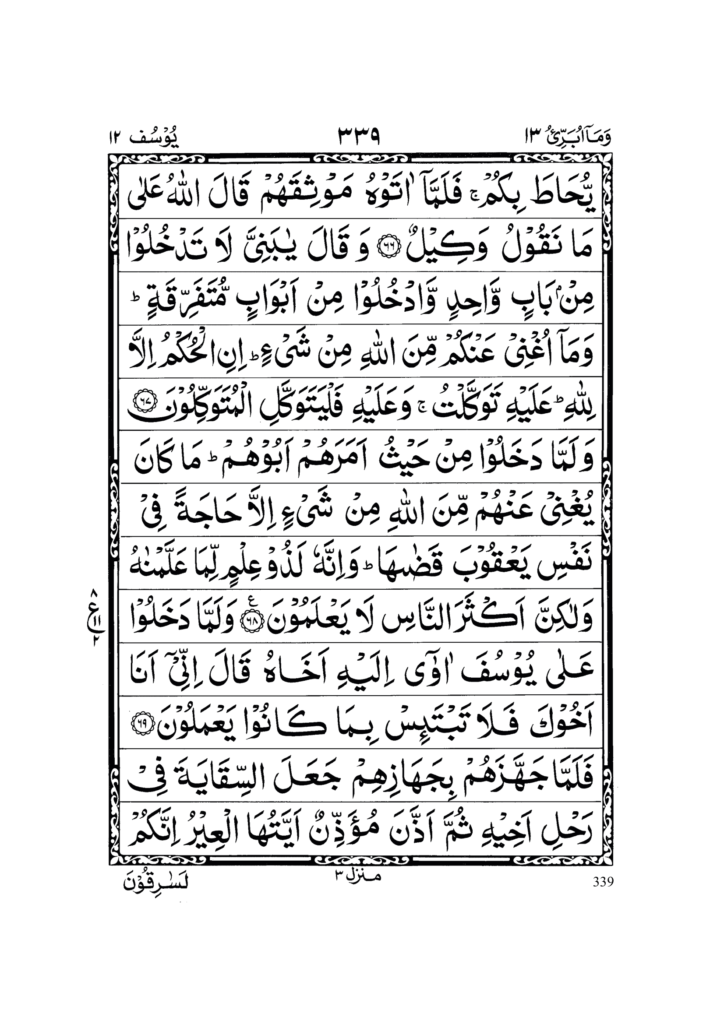 وَمَآ اُبَرِّئُ ١٣ ٣٣٩ يُوْسُف ١٢
يُّحَاطَ بِكُمْ ۚ فَلَمَّآ اٰتَوْهُ مَوْثِقَهُمْ قَالَ اللّٰهُ عَلٰى
مَا نَقُوْلُ وَكِيْلٌ ﴿٦٦﴾ وَ قَالَ يٰبَنِىَّ لَا تَدْخُلُوْا
مِنْۢ بَابٍ وَّاحِدٍ وَّادْخُلُوْا مِنْ اَبْوَابٍ مُّتَفَرِّقَةٍ ؕ
وَمَآ اُغْنِىْ عَنْكُمْ مِّنَ اللّٰهِ مِنْ شَىْءٍ ؕ اِنِ الْحُكْمُ اِلَّا
لِلّٰهِ ؕ عَلَيْهِ تَوَكَّلْتُ ۚ وَعَلَيْهِ فَلْيَتَوَكَّلِ الْمُتَوَكِّلُوْنَ ﴿٦٧﴾
وَلَمَّا دَخَلُوْا مِنْ حَيْثُ اَمَرَهُمْ اَبُوْهُمْ ؕ مَا كَانَ
يُغْنِىْ عَنْهُمْ مِّنَ اللّٰهِ مِنْ شَىْءٍ اِلَّا حَاجَةً فِىْ
نَفْسِ يَعْقُوْبَ قَضٰىهَا ؕ وَاِنَّهٗ لَذُوْ عِلْمٍ لِّمَا عَلَّمْنٰهُ
وَلٰكِنَّ اَكْثَرَ النَّاسِ لَا يَعْلَمُوْنَ ﴿٦٨﴾ ع وَلَمَّا دَخَلُوْا
٨ ع ١١ ٢
عَلٰى يُوْسُفَ اٰوٰٓى اِلَيْهِ اَخَاهُ قَالَ اِنِّىْۤ اَنَا
اَخُوْكَ فَلَا تَبْتَئِسْ بِمَا كَانُوْا يَعْمَلُوْنَ ﴿٦٩﴾
فَلَمَّا جَهَّزَهُمْ بِجَهَازِهِمْ جَعَلَ السِّقَايَةَ فِىْ
رَحْلِ اَخِيْهِ ثُمَّ اَذَّنَ مُؤَذِّنٌ اَيَّتُهَا الْعِيْرُ اِنَّكُمْ
339 منزل ٣ لَسٰرِقُوْنَ